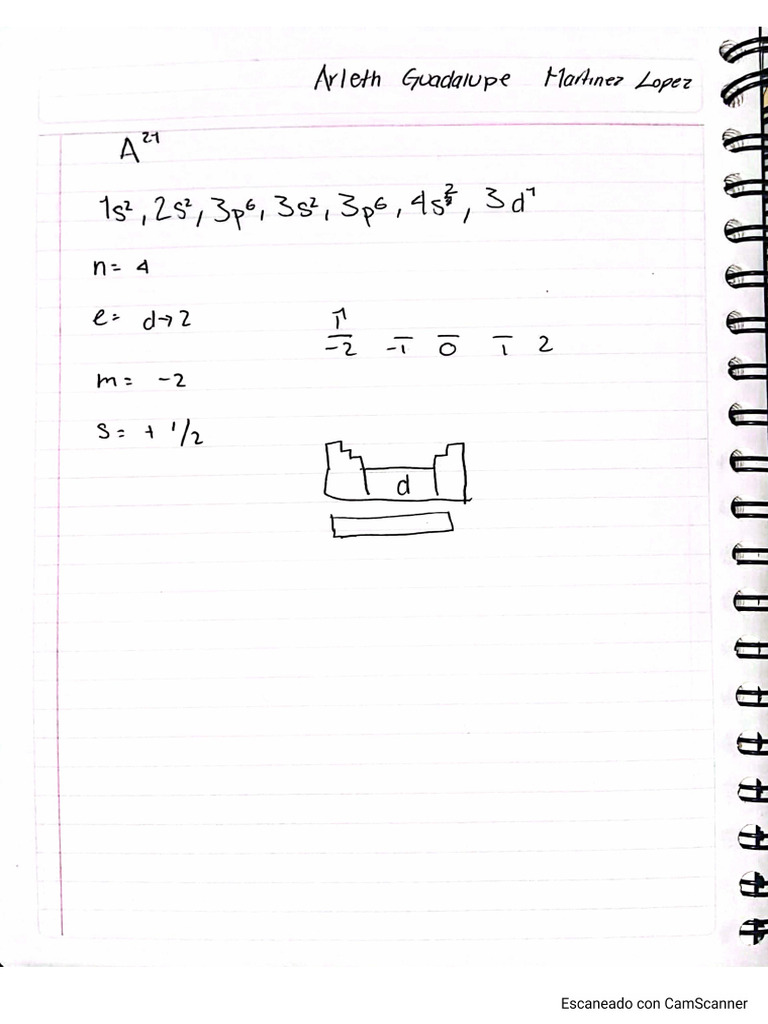 Arleth Guadalupe Martinez Lopez
A²¹
1s², 2s², 3p⁶, 3s², 3p⁶, 4s², 3d¹
n= 4
e= d→2
1
-2 -1 0 1 2
m= -2
s= + 1/2
d
Escaneado con CamScanner